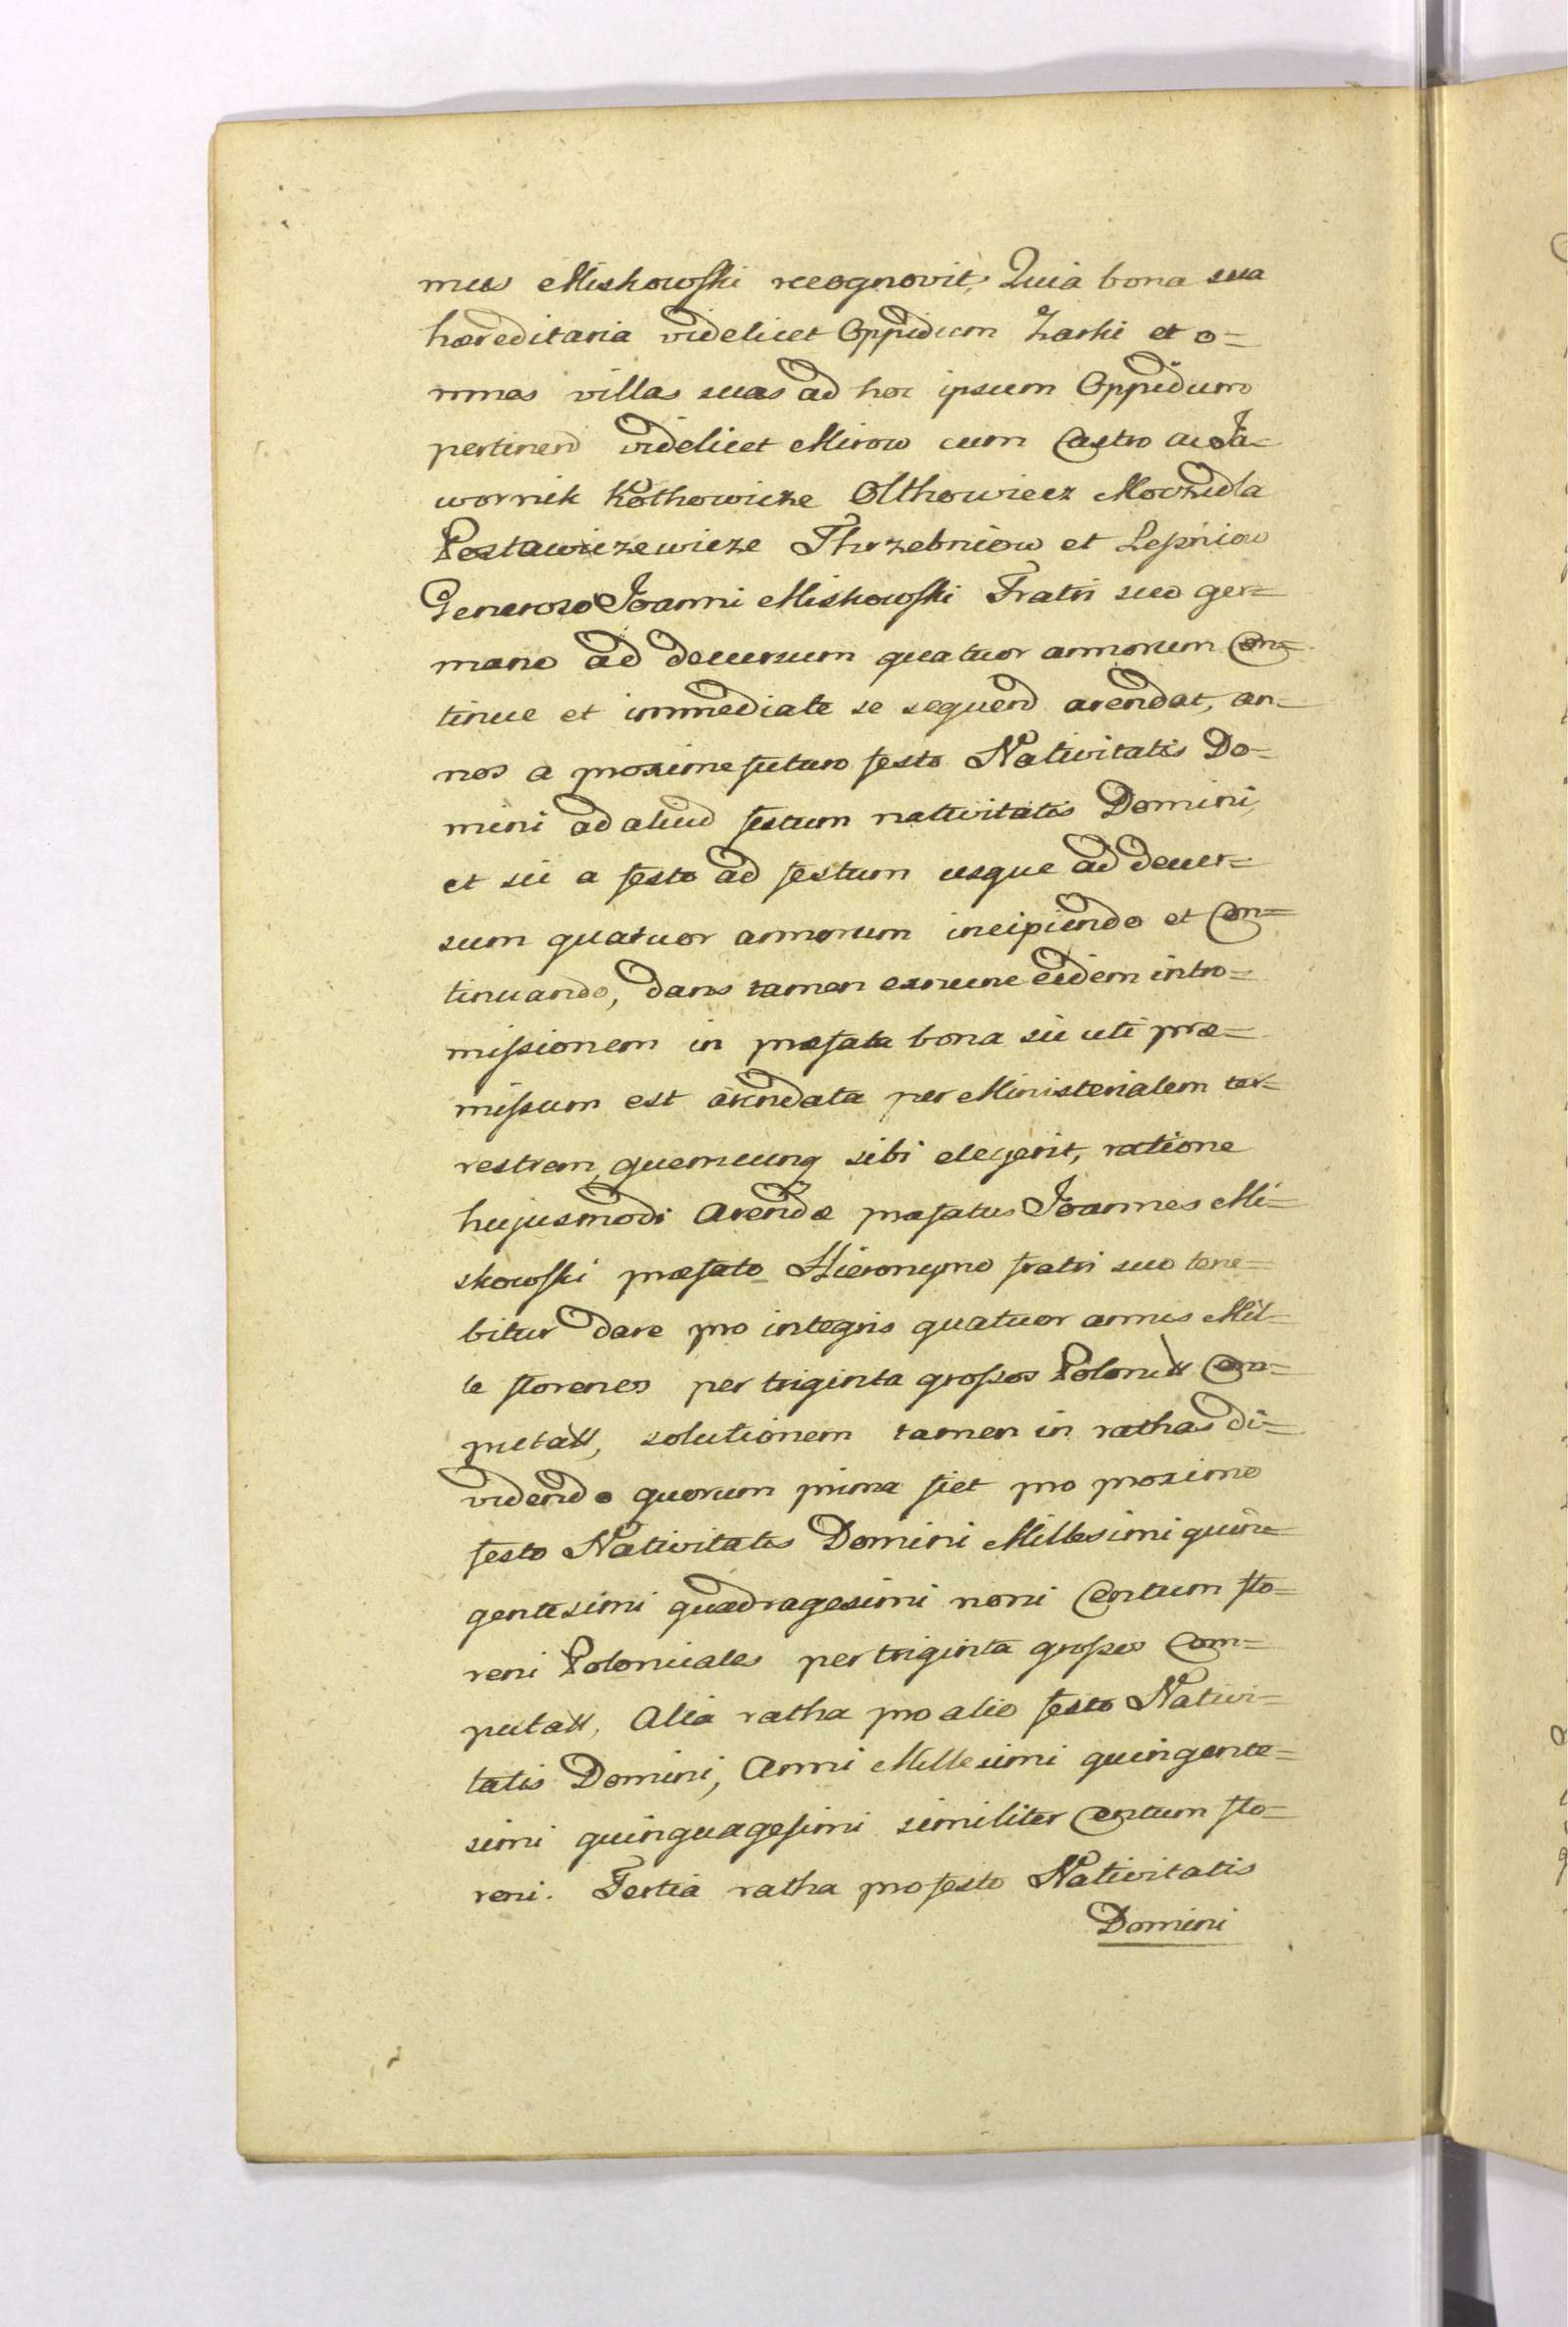 mus Miskowski recognovit, Quia bona sua
hæreditaria videlicet Oppidum Zarki et o=
mnes villas suas ad hoc ipsum Oppidum
pertinend videlicet Mirow cum Castro ac Ja=
wornik Kothowicze Olthowiecz Moczidla
Postawczewicze Thrzebniow et Lesniow
Generoso Joanni Miskowski Fratri suo ger=
mano ad decursum quatuor annorum Con=
tinue et immediate se sequend arendat, an=
nos a proxime futuro festo Nativitatis Do=
mini ad aliud festum nativitatis Domini,
et sic a festo ad festum usque ad decur=
sum quatuor annorum incipiendo et Con=
tinuando, dans tamen exnunc eidem intro=
missionem in præfata bona sic uti præ=
missum est arendata per Ministerialem ter=
restrem, quemcunq sibi elegerit, ratione
hujusmodi Arendæ præfatus Joannes Mi=
skowski præfato Hieronymo fratri suo tene=
bitur dare pro integris quatuor annis Mil=
le florenos per triginta grossos Polonick Com=
putatt, solutionem tamen in rathas di=
videndo quorum prima fiet pro proximo
festo Nativitatis Domini Millesimi quin=
gentesimi quadragesimi noni Centum flo=
reni Polonicales per triginta grossos Com=
putatt, Alia ratha pro alio festo Nativi=
tatis Domini, Anni Millesimi quingente=
simi quinquagesimi similiter Centum flo=
reni. Tertia ratha pro festo Nativitatis
Domini